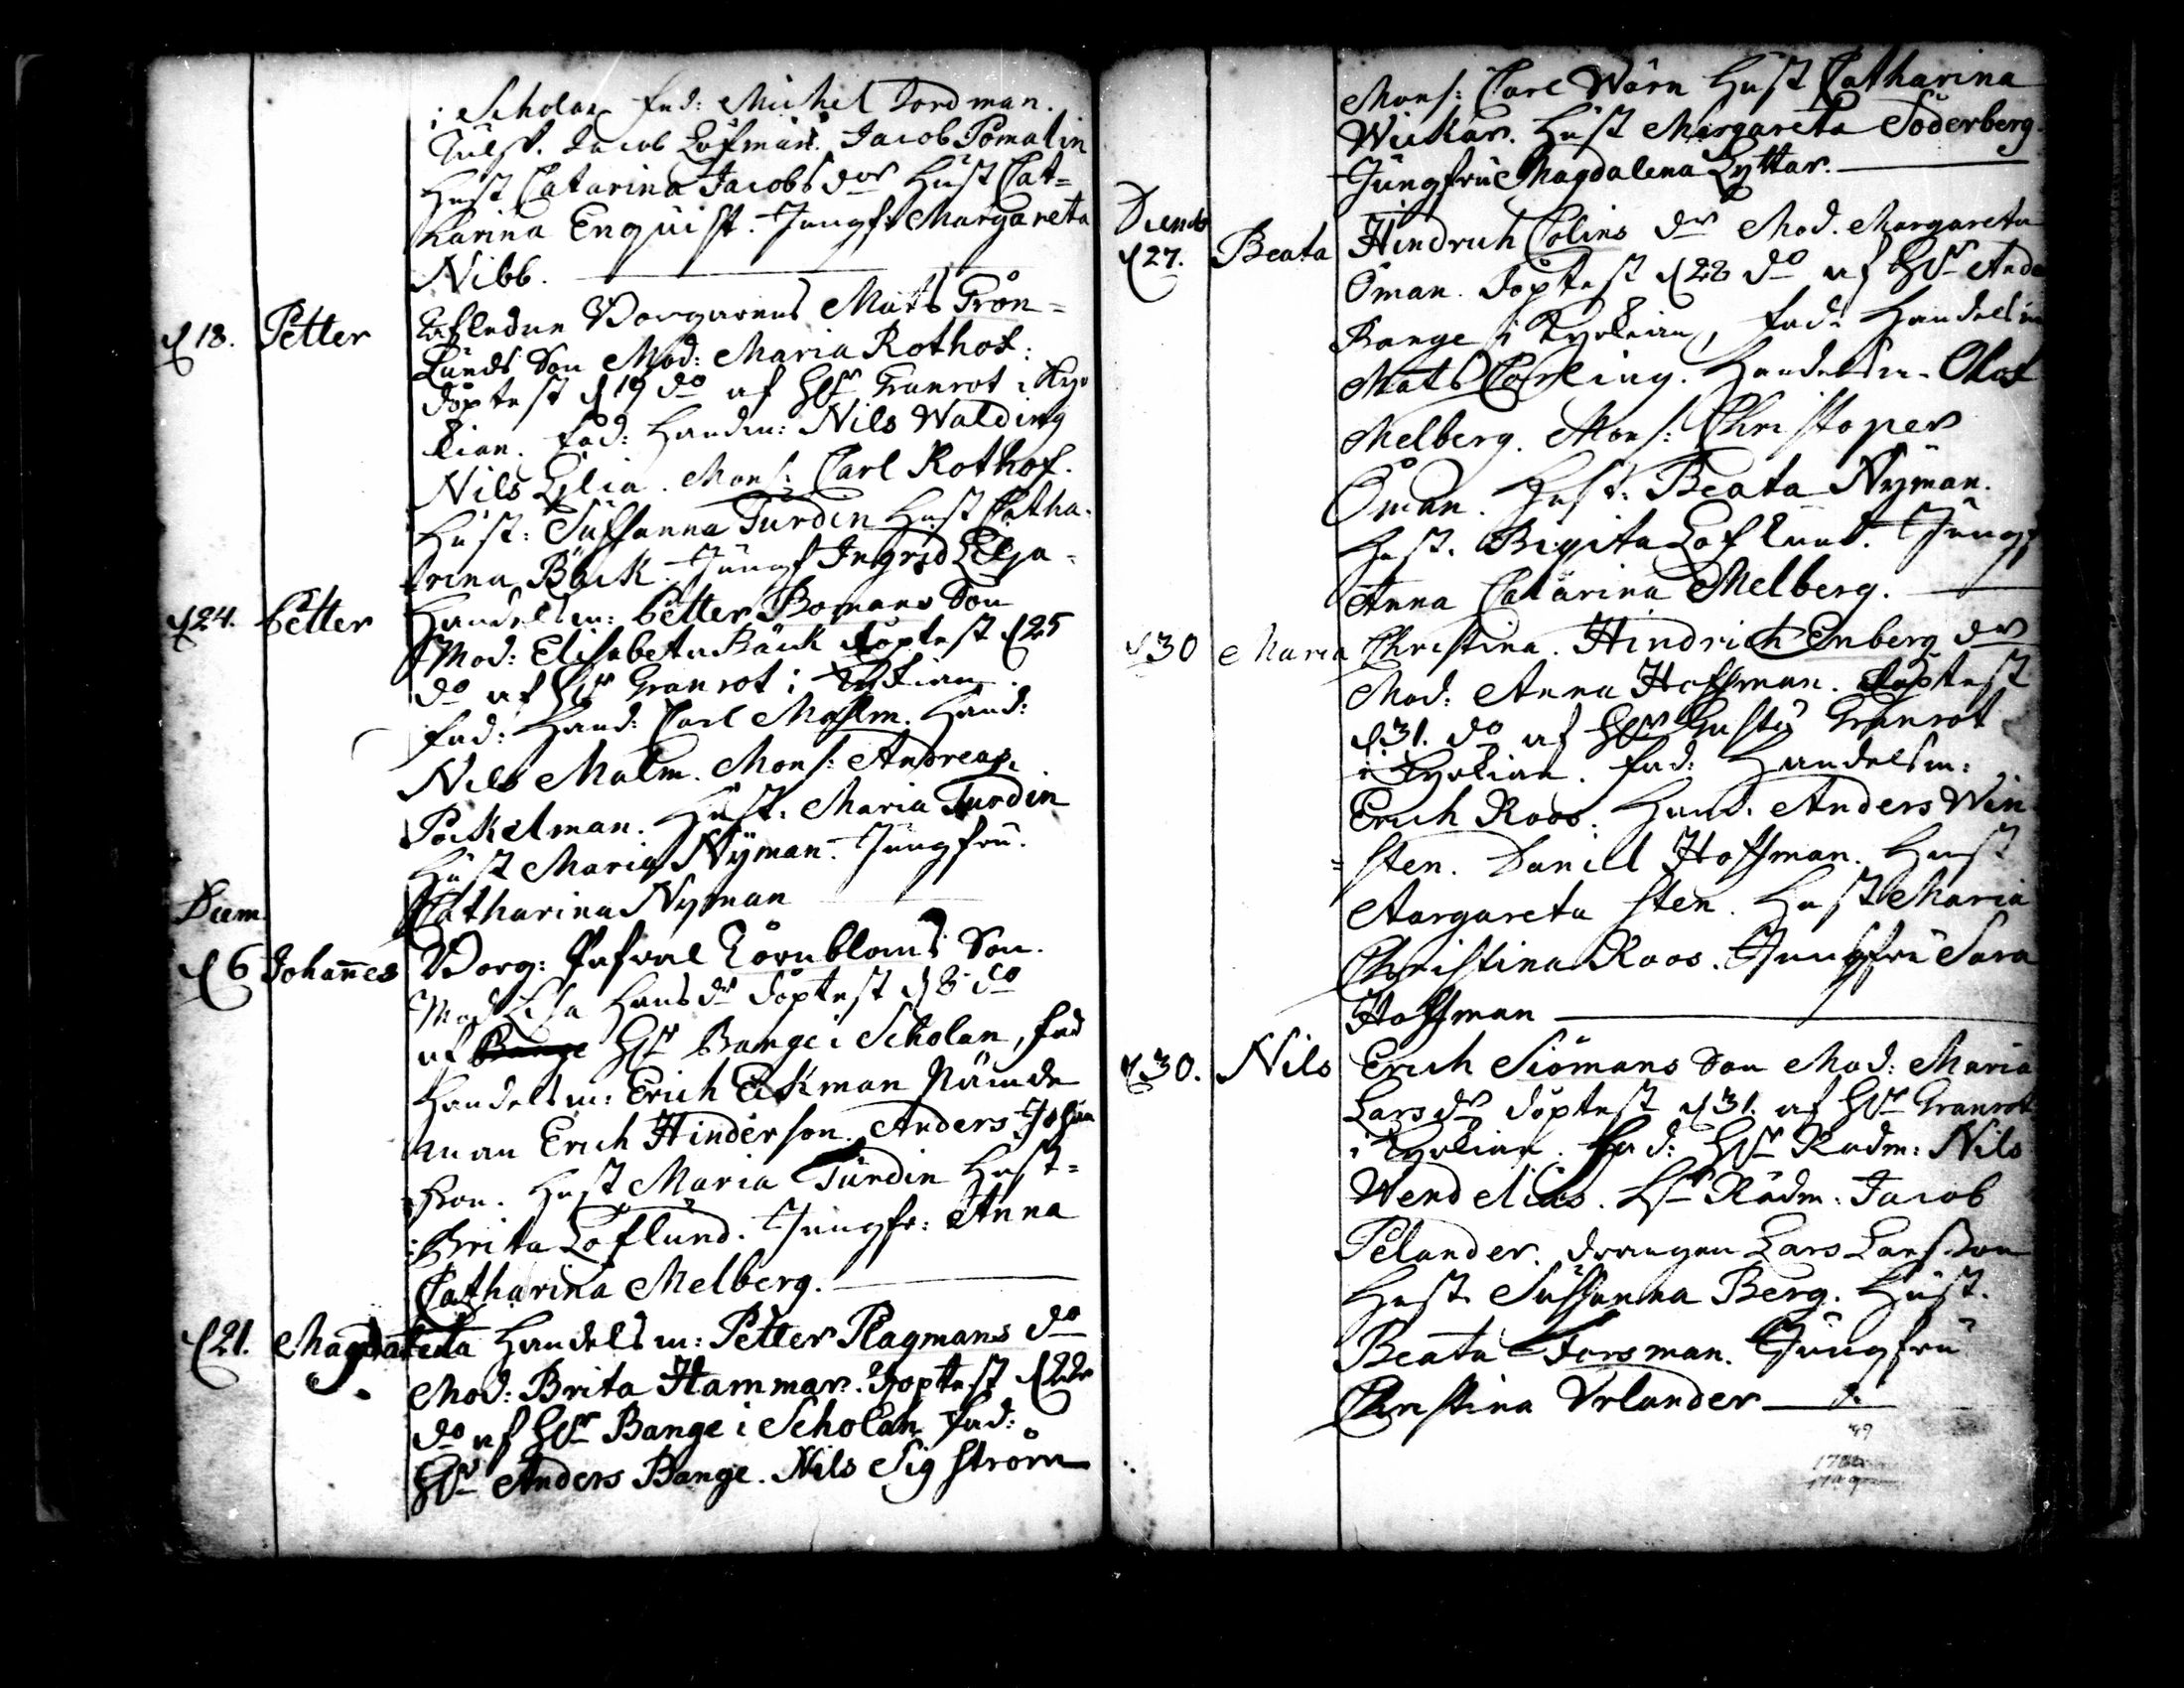 i Scholan fad: Michel Nordman.
Gulsm. Jacob Löfman. Jacob Pomalin
Hust Catarina Jacobs dor Hust Cat=
harina Enquist. Jungfr Margareta
Nibb.
d 18. Petter Afledne Borgarens Mats Grön=
lunds Son Mod: Maria Rothof.
döptest d 19 do af Hr Granrot i Kyr
kian. fad: Handm: Nils Walding
Nils Lilia. Mons: Carl Rothof.
Hust: Sussanna Turdin Hust Catha=
rina Bäck. Jungf Ingrid Lilja.
d 24. Petter Handelsm: Petter Bomans Son
Mod: Elisabeta Bäck döptest d 25
do af Hr Granrot i Kyrkian.
fad: Hand: Carl Malm. Hand:
Nils Malm. Mons: Andreas
Pockelman. Hust: Maria Turdin
Hust Maria Nyman. Jungfru.
Catharina Nyman
Decem.
d 6 Johannes Borg: Törnbloms Son.
Mod Lisa Hans dr döptest d 8 do
af Bange Hr Bange i Scholan, fad
Handelsm: Erich Ekman Nämde
man Erich Hinderson. Anders Johan
son. Hust Maria Turdin Hust=
Brita Löflund. Jungfr: Anna
Catharina Melberg.
d 21. Magdalena Handelsm: Petter Plagmans do
Mod: Brita Hammar. Döptest d 22
do af Hr Bange i Scholan fad:
Hr Anders Bange. Nils Sigström
Mons: Carl Wärn Hust Catharina
Wickar. Hust Margareta Söderberg.
Jungfru Magdalena Lyttar.
Decemb
d 27. Beata Hindrich Colins dr Mod. Margareta
Öman. döptest d 28 do af Hr And
Bange i Kyrkian, fad: Handelsm
Mats Carling. Handelsm. Olof
Melberg. Mons: Christoper
Öman. Hust: Beata Nyman.
Hust. Brigita Löflund. Jungf
Anna Catarina Melberg.
d 30 Maria Christina. Hindrich Enberg dr
Mod: Anna Hoffman. döptest
d 31. do af Hr Granrot
i Kyrkian. fad: Handelsm:
Erich Roos. Hand. Anders Win
=sten. Daniel Hoffman. Hust
Margareta sten. Hust Maria
Christina Roos. Jungfru Sara
Hoffman
d 30. Nils Erich Siömans Son Mod: Maria
Lars dr döptest d 31. af Hr Granrot
i Kyrkian. fad: Hr Rådm: Nils
Wendelius. Hr Rådm: Jacob
Pelander. drengen Lars Larsson
Hust. Sussanna Berg. Hust.
Beata Forsman. Jungfru
Christina Urlander